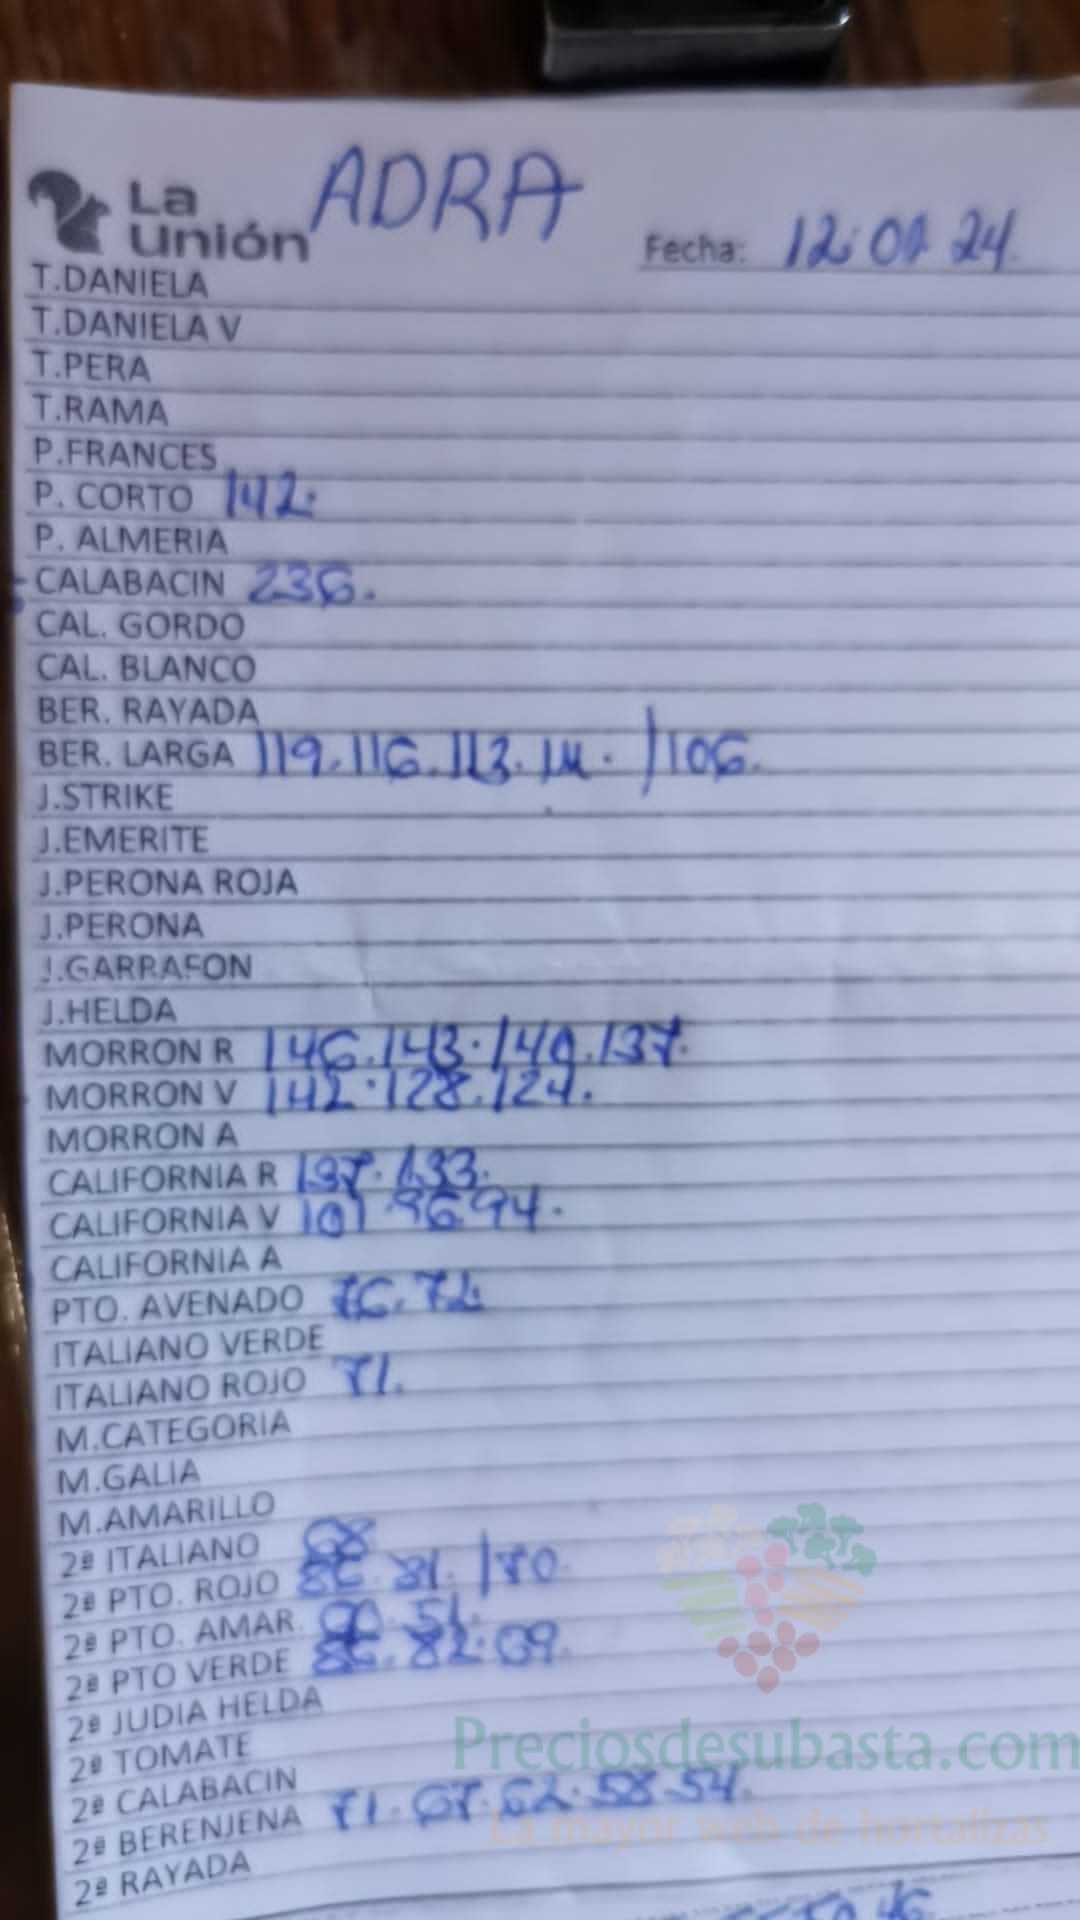 La unión ADRA
Fecha: 12.01 24.
T.DANIELA
T.DANIELA V
T.PERA
T.RAMA
P.FRANCES
P. CORTO 142.
P. ALMERIA
CALABACIN 236.
CAL. GORDO
CAL. BLANCO
BER. RAYADA
BER. LARGA 119.116.113.111. /106.
J.STRIKE
J.EMERITE
J.PERONA ROJA
J.PERONA
J.GARRAFON
J.HELDA
MORRON R 146.143.140.137.
MORRON V 142.128.124.
MORRON A
CALIFORNIA R 137.133.
CALIFORNIA V 101.96.94.
CALIFORNIA A
PTO. AVENADO 76.72.
ITALIANO VERDE
ITALIANO ROJO 71.
M.CATEGORIA
M.GALIA
M.AMARILLO
2ª ITALIANO 68
2ª PTO. ROJO 86. 81. /80.
2ª PTO. AMAR. 51.
2ª PTO VERDE 86. 82.
2ª JUDIA HELDA
2ª TOMATE
2ª CALABACIN
2ª BERENJENA 71.67.62.58.54.
2ª RAYADA
Preciosdesubasta.com
La mayor web de hortalizas